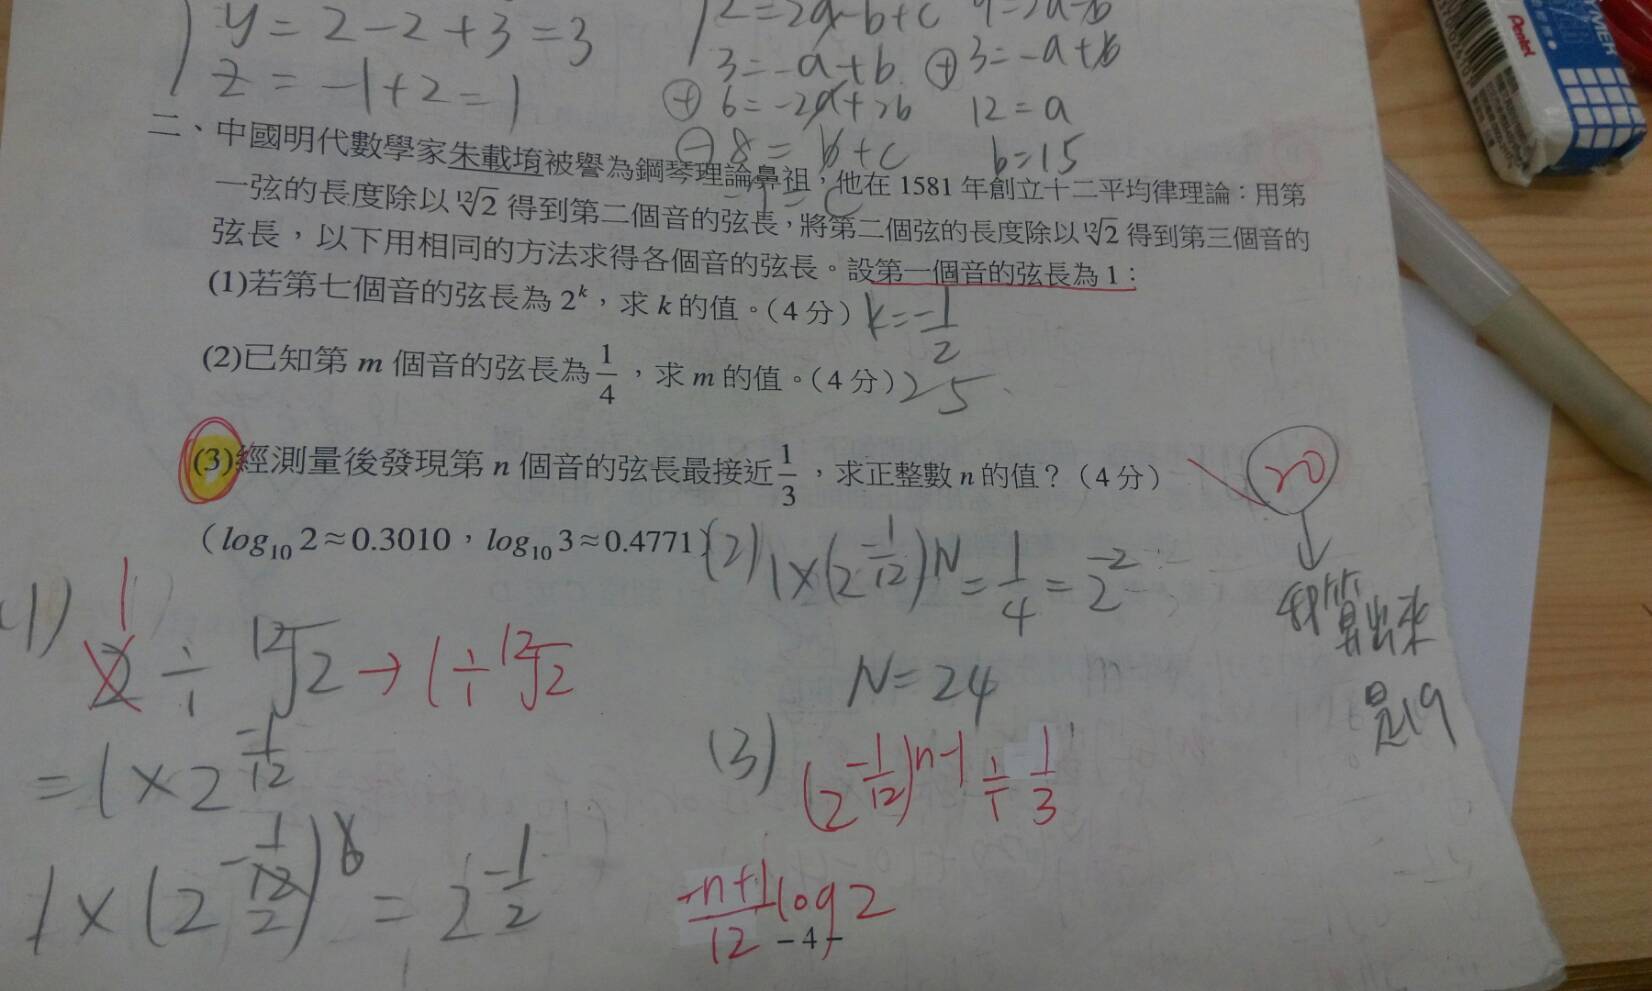 y = 2 - 2 + 3 = 3
z = -1 + 2 = 1
2 = 2a - b + c
3 = -a + b
⊕ 3 = -a + b
⊕ 6 = -2a + 2b
12 = a
⊖ 8 = b + c
b = 15
Pentel
二、中國明代數學家朱載堉被譽為鋼琴理論鼻祖，他在 1581 年創立十二平均律理論：用第
一弦的長度除以 ¹²√2 得到第二個音的弦長，將第二個弦的長度除以 ¹²√2 得到第三個音的
弦長，以下用相同的方法求得各個音的弦長。設第一個音的弦長為 1：
(1)若第七個音的弦長為 2ᵏ，求 k 的值。（4 分） k = -1/2
(2)已知第 m 個音的弦長為 1/4，求 m 的值。（4 分） 25
(3)經測量後發現第 n 個音的弦長最接近 1/3，求正整數 n 的值？（4 分） 20
（log₁₀ 2≈0.3010，log₁₀ 3≈0.4771）
我算出來
是19
(1) 1 2 ÷ ¹²√2 → 1 ÷ ¹²√2
= 1 × 2^(-1/12)
1 × (2^(-1/12))^6 = 2^(-1/2)
(2) 1×(2^(-1/12))^N = 1/4 = 2^-2
N = 24
(3) (2^(-1/12))^(n-1) ÷ 1/3
(-n+1)/12 log 2
- 4 -